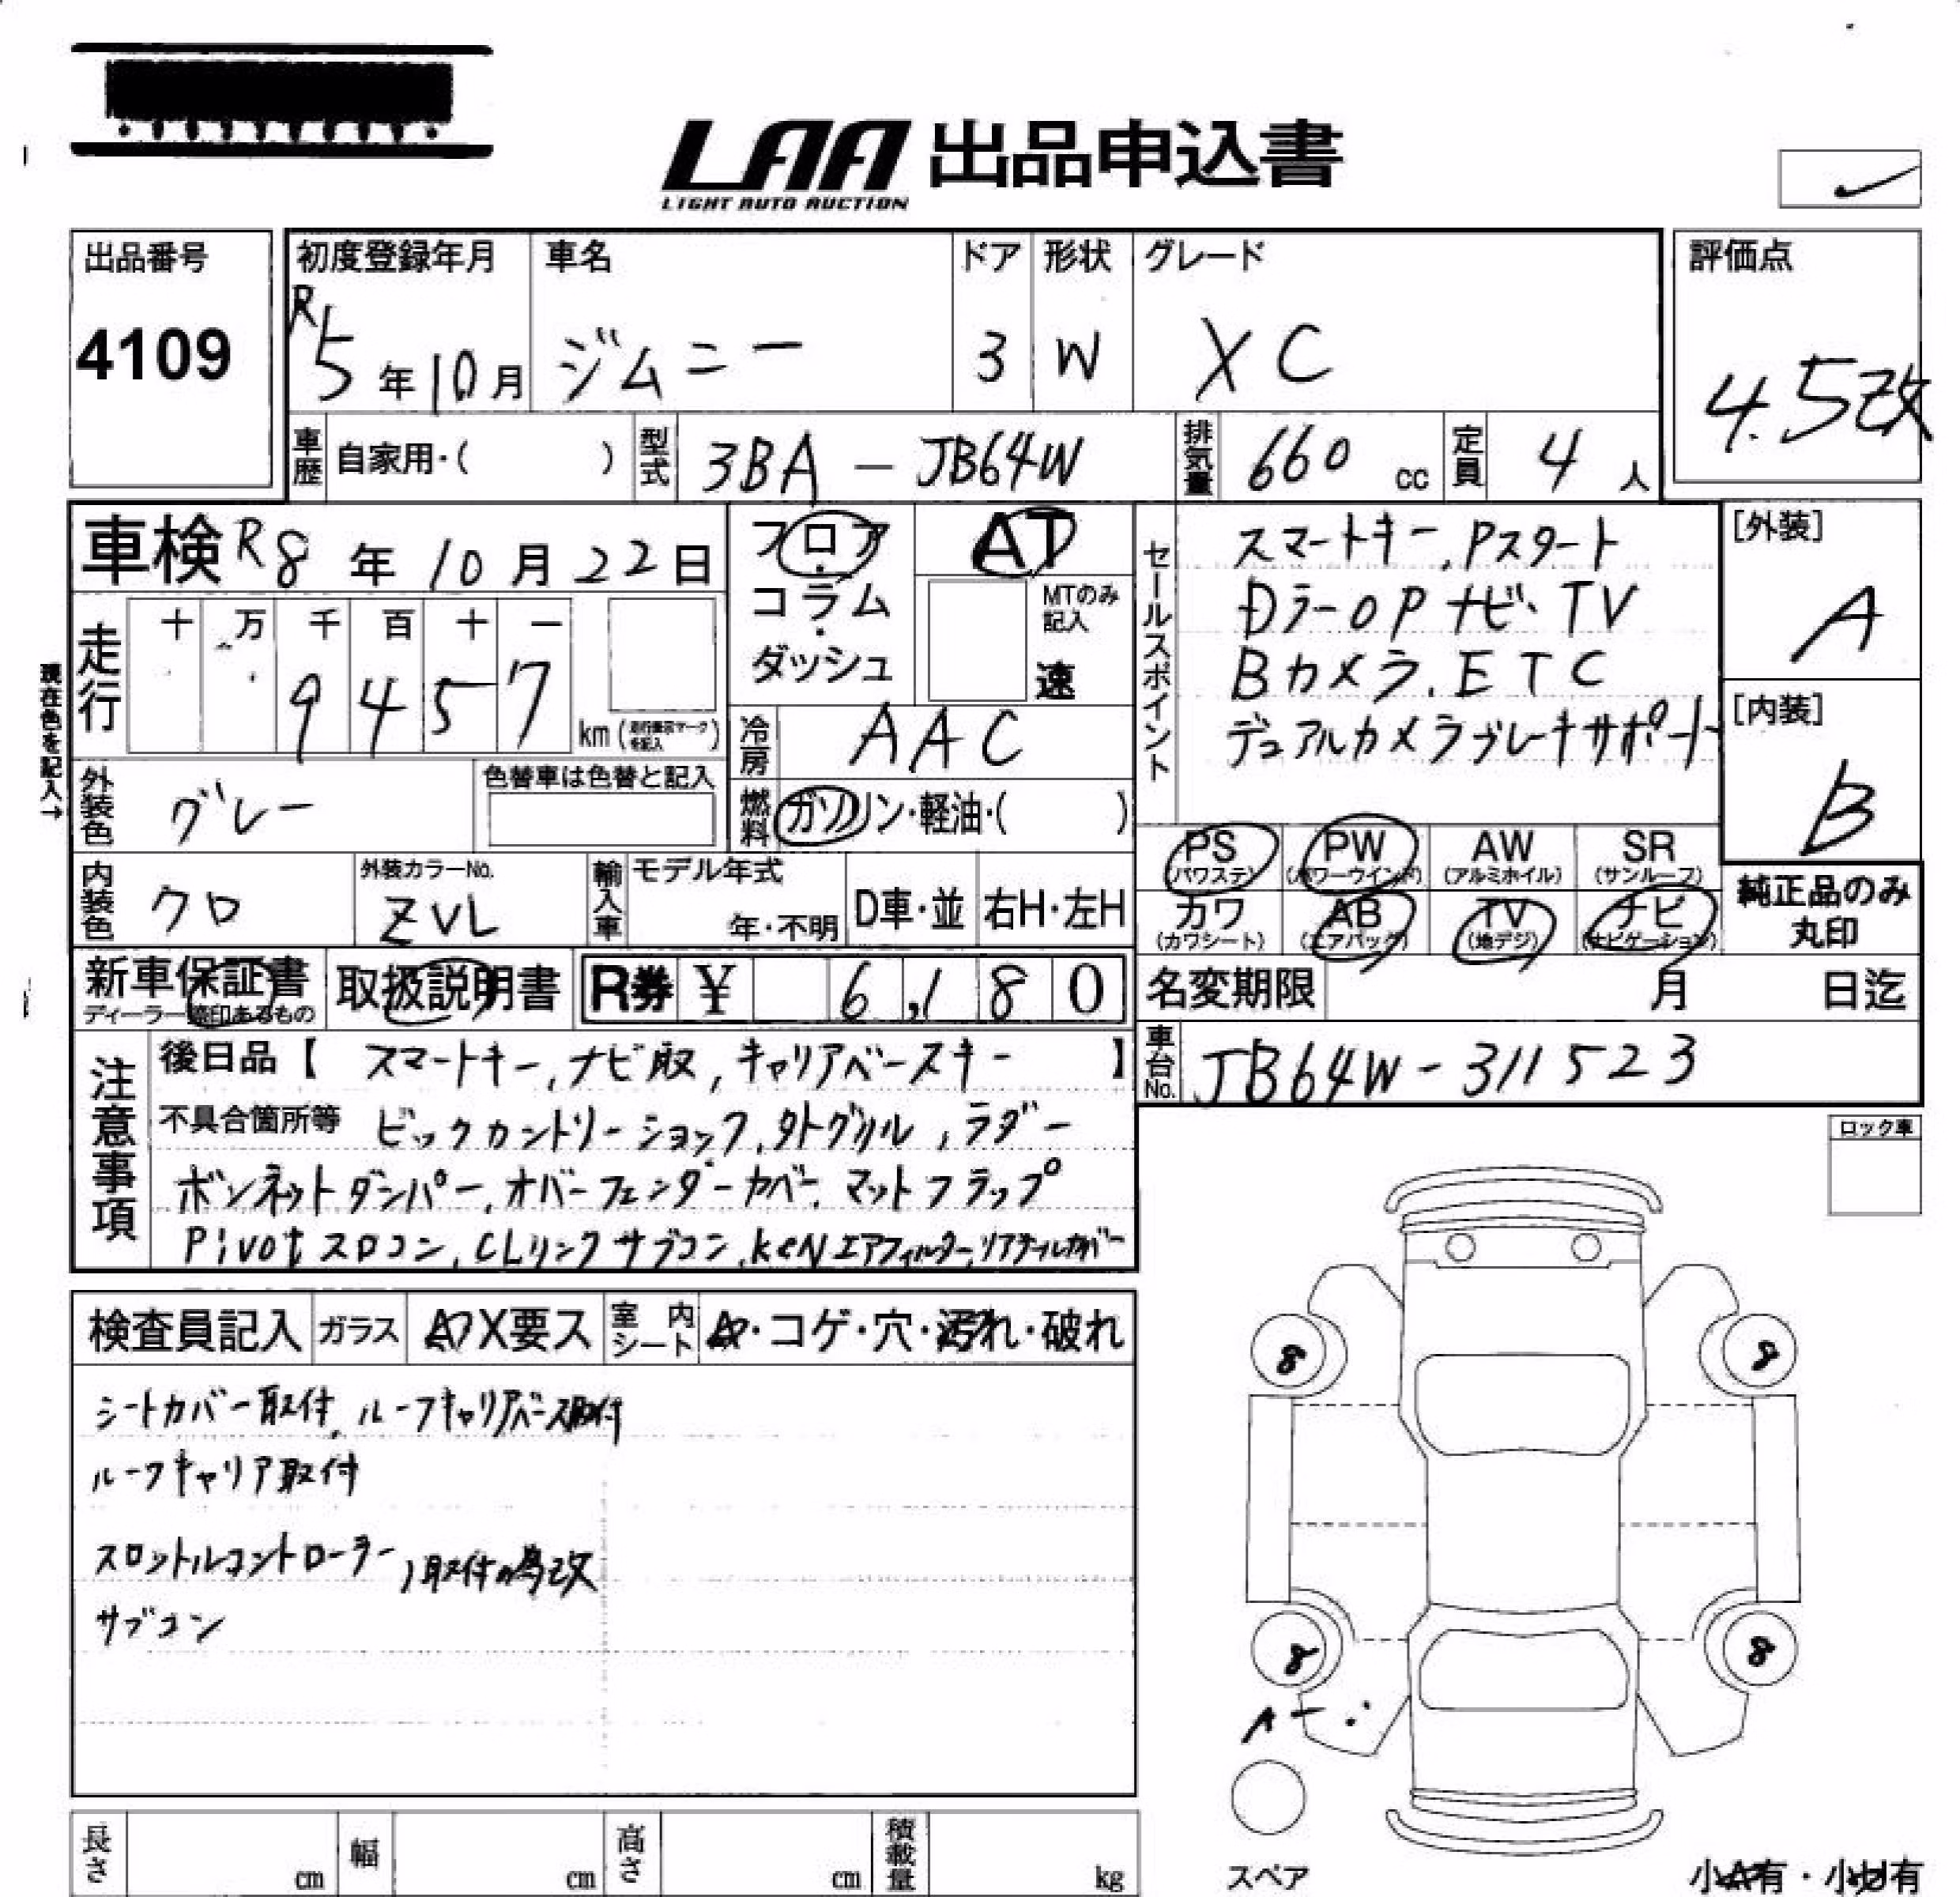 LAA 出品申込書
LIGHT AUTO AUCTION
出品番号
4109
初度登録年月
R5年10月
車名
ジムニー
ドア
3
形状
W
グレード
XC
評価点
4.5改
車歴 自家用・( )
型式 3BA - JB64W
排気量 660 cc
定員 4 人
車検 R8年10月22日
現在色を記入→
走行 十 万 千 百 十 一
9457 km
フロア・コラム・ダッシュ
AT
MTのみ記入
速
冷房 AAC
燃料 ガソリン・軽油・( )
外装色 グレー
色替車は色替と記入
内装色 クロ
外装カラーNo.
ZVL
輸入車 モデル年式
年・不明
D車・並 右H・左H
セールスポイント
スマートキー, Pスタート
DラーOPナビ、TV
Bカメラ, ETC
デュアルカメラブレーキサポート
[外装]
A
[内装]
B
PS (パワステ) PW (パワーウインド) AW (アルミホイル) SR (サンルーフ)
カワ (カワシート) AB (エアバック) TV (地デジ) ナビ (ナビゲーション)
純正品のみ丸印
新車保証書
ディーラー捺印あるもの
取扱説明書
R券 ¥ 6,180
名変期限 月 日迄
車台No. JB64W-311523
注意事項
後日品【 スマートキー, ナビ取, キャリアベースキー 】
不具合箇所等 ビックカントリーショック, タトグリル, ラダー
ボンネットダンパー, オバーフェンダーカバー, マットフラップ
Pivotスロコン, CLリンクサブコン, KeNエアフィルター, リアテールカバー
ロック車
検査員記入 ガラス A ワ X要ス 室内シート ・コゲ・穴・汚れ・破れ
シートカバー取付, ルーフキャリアベース取付
ルーフキャリア取付
スロットルコントローラー
サブコン
取付の為改
8 8
8 8
A
スペア
長さ cm 幅 cm 高さ cm 積載量 kg
小A有・小U有